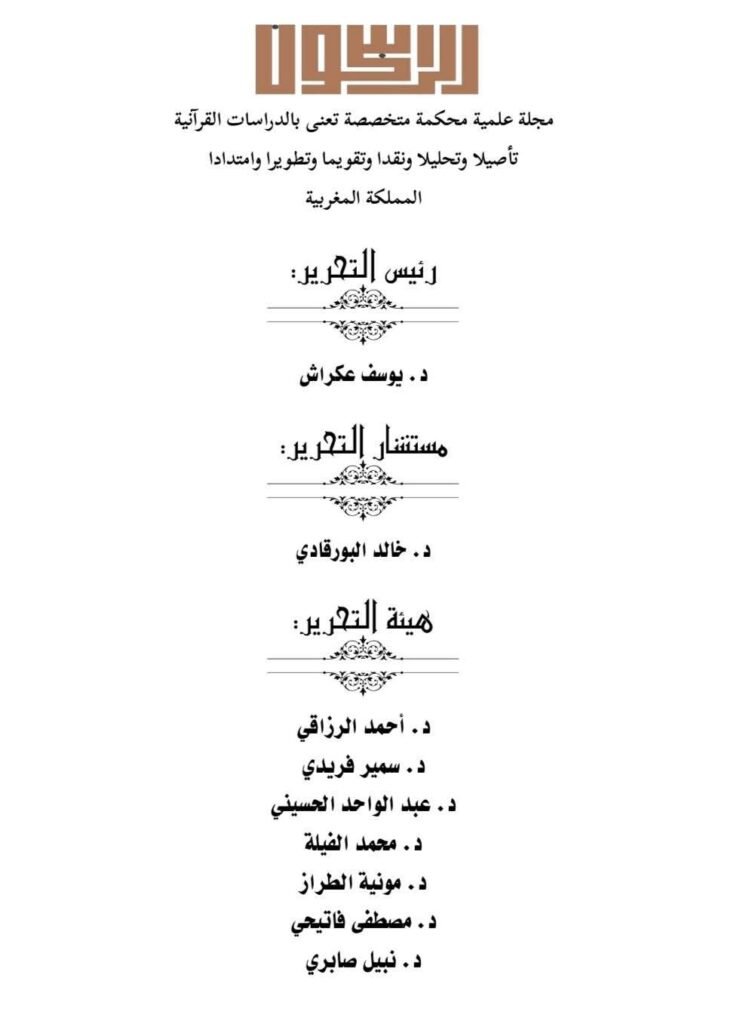 الراسخون
مجلة علمية محكمة متخصصة تعنى بالدراسات القرآنية
تأصيلا وتحليلا ونقدا وتقويما وتطويرا وامتدادا
المملكة المغربية
رئيس التحرير:
د. يوسف عكراش
مستشار التحرير:
د. خالد البورقادي
هيئة التحرير:
د. أحمد الرزاقي
د. سمير فريدي
د. عبد الواحد الحسيني
د. محمد الفيلة
د. مونية الطراز
د. مصطفى فاتيحي
د. نبيل صابري